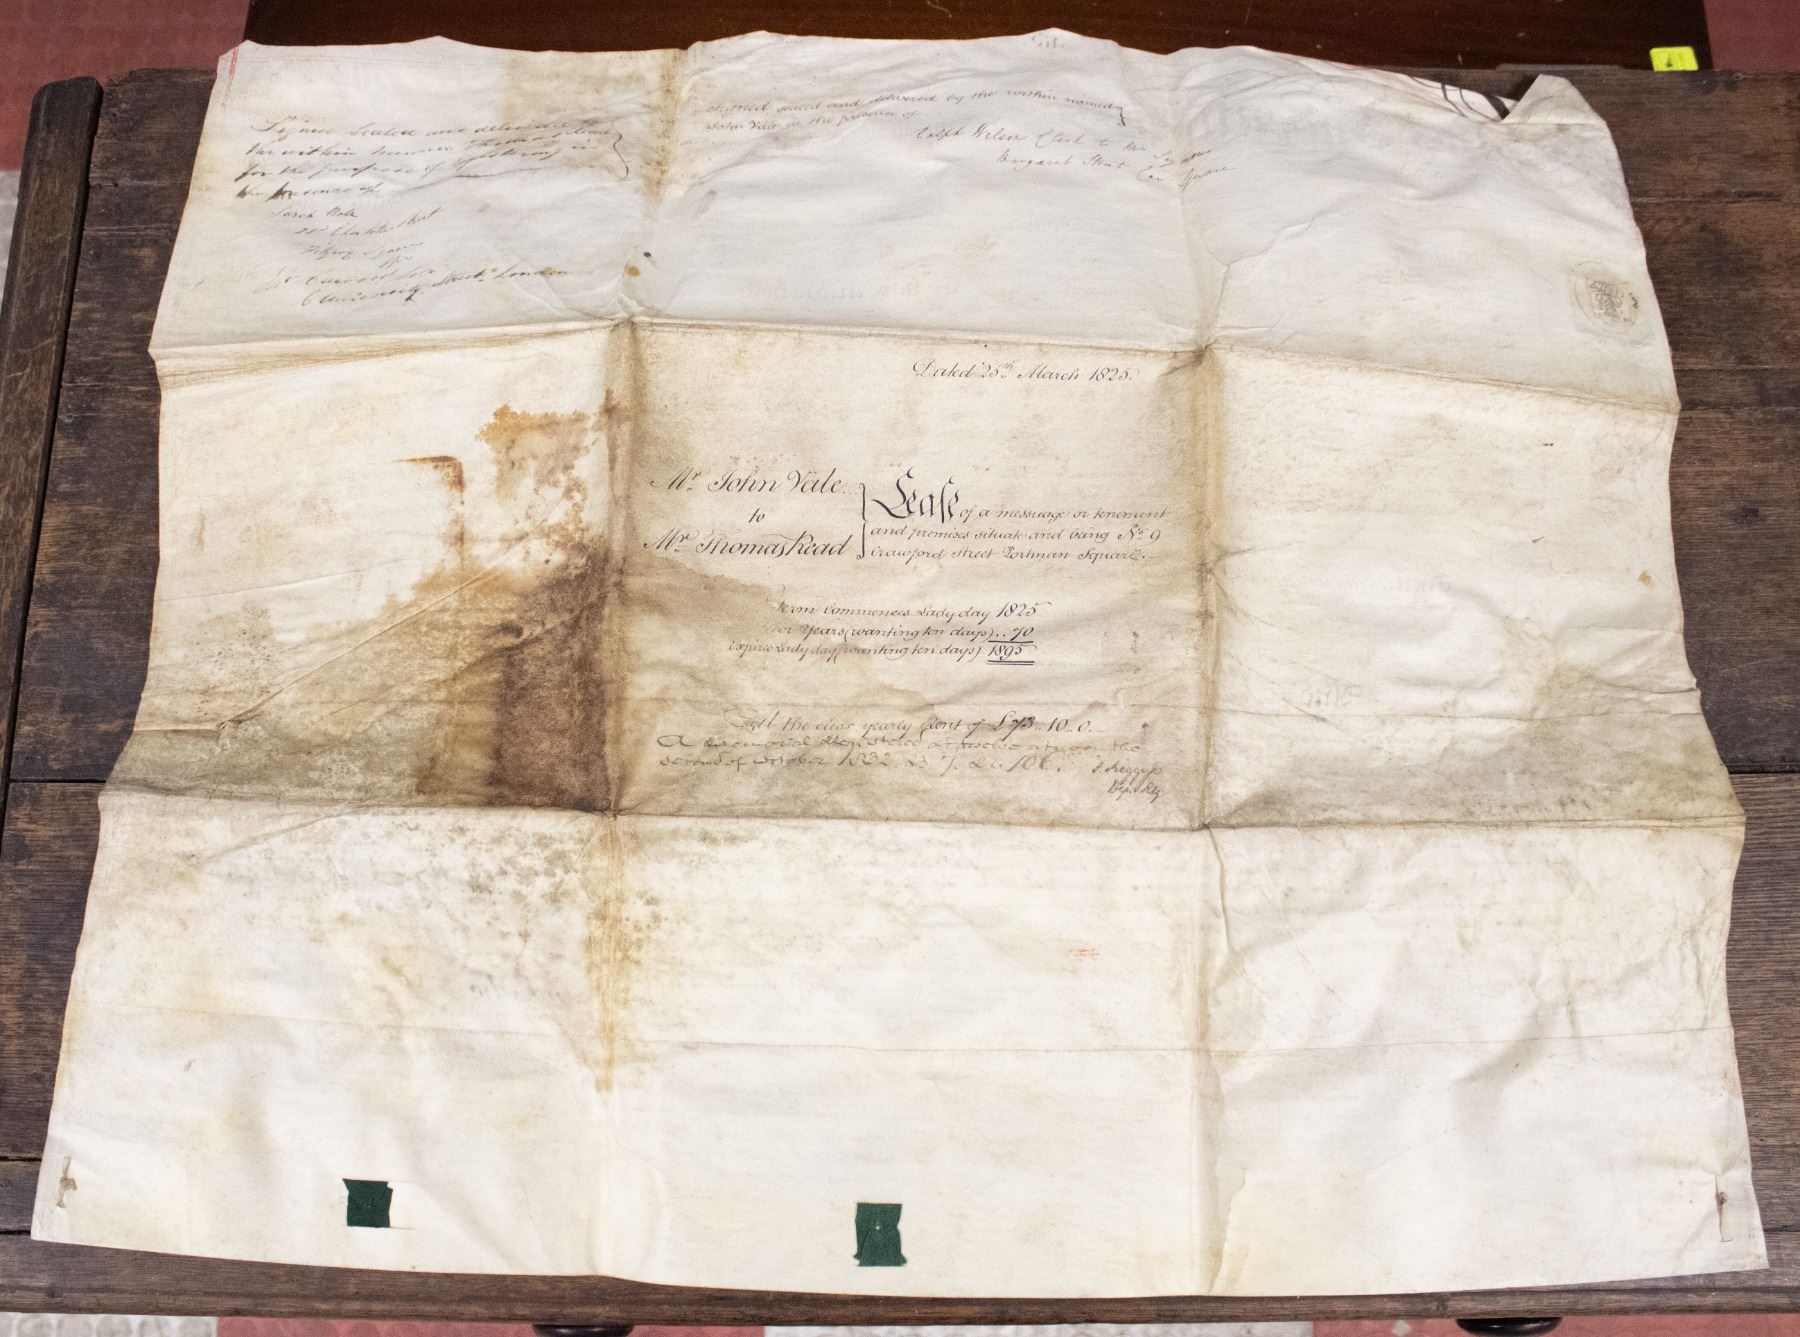 Signed Sealed and delivered by
the within named Thomas Read
for the purpose of registering in
the presence of
Sarah
Charlotte Street
Fitzroy Square
University Street London
Signed sealed and delivered by the within named
John Vale in the presence of
Ralph Wilson Clerk to Mr
Margaret Street Square
Dated 25th March 1825.
Mr John Vale
to
Mr Thomas Read
Lease of a messuage or tenement
and premises situate and being No. 9
Crawford Street Portman Square.
Term commences Lady day 1825
For Years (wanting ten days) .. 70
expires Lady day (wanting ten days) 1895
At the clear yearly Rent of £73.. 10.. 0.
A Memorial Registered at twelve at noon the
second of October 1832. B. 7. No. 106.
Dep. Reg.